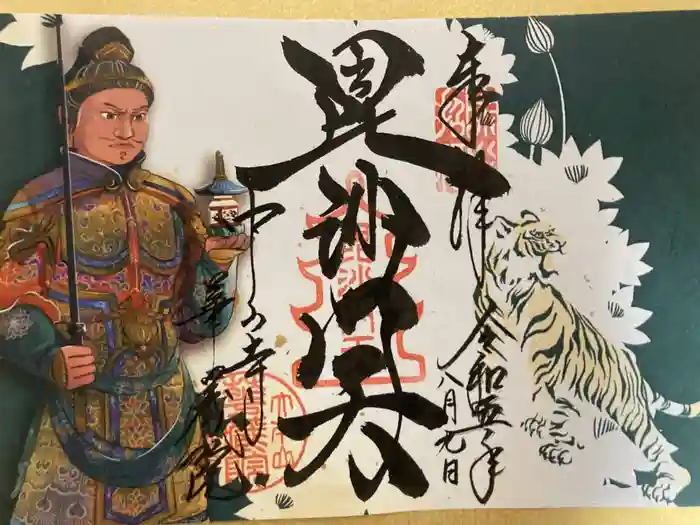 奉拝
令和五年
八月九日
毘沙門天
中山寺
華蔵院